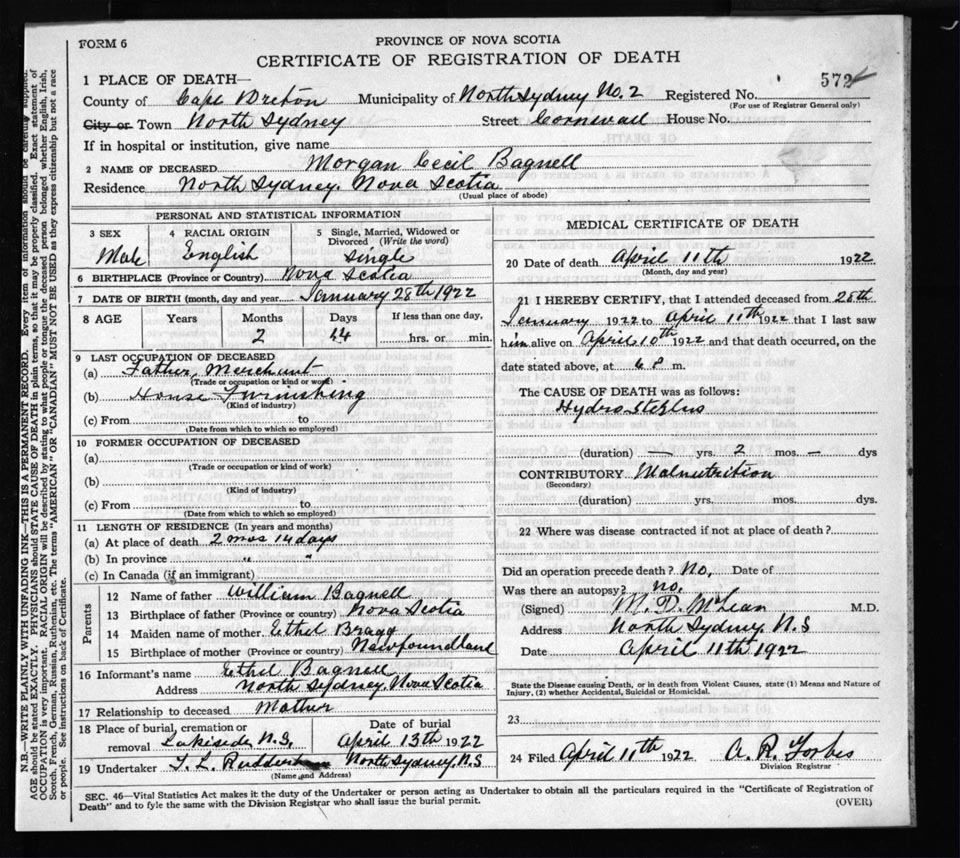 FORM 6
PROVINCE OF NOVA SCOTIA
CERTIFICATE OF REGISTRATION OF DEATH
572
1 PLACE OF DEATH—
County of Cape Breton Municipality of North Sydney No. 2 Registered No.
(For use of Registrar General only)
City or Town North Sydney Street Cornwall House No.
If in hospital or institution, give name
2 NAME OF DECEASED Morgan Cecil Bagnell
Residence North Sydney, Nova Scotia
(Usual place of abode)
PERSONAL AND STATISTICAL INFORMATION
3 SEX 4 RACIAL ORIGIN 5 Single, Married, Widowed or Divorced (Write the word)
Male English Single
6 BIRTHPLACE (Province or Country) Nova Scotia
7 DATE OF BIRTH (month, day and year) January 28th 1922
8 AGE Years Months Days If less than one day,
2 14 hrs. or min.
9 LAST OCCUPATION OF DECEASED
(a) Father, Merchant
(Trade or occupation or kind or work)
(b) House Furnishing
(Kind of industry)
(c) From to
(Date from which to which so employed)
10 FORMER OCCUPATION OF DECEASED
(a)
(Trade or occupation or kind of work)
(b)
(Kind of industry)
(c) From to
(Date from which to which so employed)
11 LENGTH OF RESIDENCE (In years and months)
(a) At place of death 2 mos 14 days
(b) In province "
(c) In Canada (if an immigrant)
Parents
12 Name of father William Bagnell
13 Birthplace of father (Province or Country) Nova Scotia
14 Maiden name of mother Ethel Bragg
15 Birthplace of mother (Province or country) Newfoundland
16 Informant's name Ethel Bagnell
Address North Sydney, Nova Scotia
17 Relationship to deceased Mother
18 Place of burial, cremation or removal Lakeside, N.S. Date of burial April 13th 1922
19 Undertaker North Sydney, N.S
(Name and Address)
MEDICAL CERTIFICATE OF DEATH
20 Date of death April 11th 1922
(Month, day and year)
21 I HEREBY CERTIFY, that I attended deceased from 28th
January 1922 to April 11th 1922 that I last saw
him alive on April 10th 1922 and that death occurred, on the
date stated above, at 6 P m.
The CAUSE OF DEATH was as follows:
(duration) — yrs. 2 mos. — dys
CONTRIBUTORY Malnutrition
(Secondary)
(duration) yrs. mos. dys.
22 Where was disease contracted if not at place of death?
Did an operation precede death? No, Date of
Was there an autopsy? no.
(Signed) M. D. McLean M.D.
Address North Sydney N.S
Date April 11th 1922
State the Disease causing Death, or in death from Violent Causes, state (1) Means and Nature of
Injury, (2) whether Accidental, Suicidal or Homicidal.
23
24 Filed April 11th 1922 A. R. Forbes
Division Registrar
SEC. 46—Vital Statistics Act makes it the duty of the Undertaker or person acting as Undertaker to obtain all the particulars required in the "Certificate of Registration of
Death" and to fyle the same with the Division Registrar who shall issue the burial permit.
(OVER)
N.B.—WRITE PLAINLY WITH UNFADING INK—THIS IS A PERMANENT RECORD. Every item of information should be carefully supplied.
AGE should be stated EXACTLY. PHYSICIANS should STATE CAUSE OF DEATH in plain terms, so that it may be properly classified. Exact statement of
OCCUPATION is very important. RACIAL ORIGIN will be described by stating to what people or tongue the deceased person belonged, whether English, Irish,
Scotch, French, German, Russian, Ruthenian, etc. The terms "AMERICAN" OR "CANADIAN" MUST NOT BE USED as they express citizenship but not a race
or people. See instructions on back of Certificate.